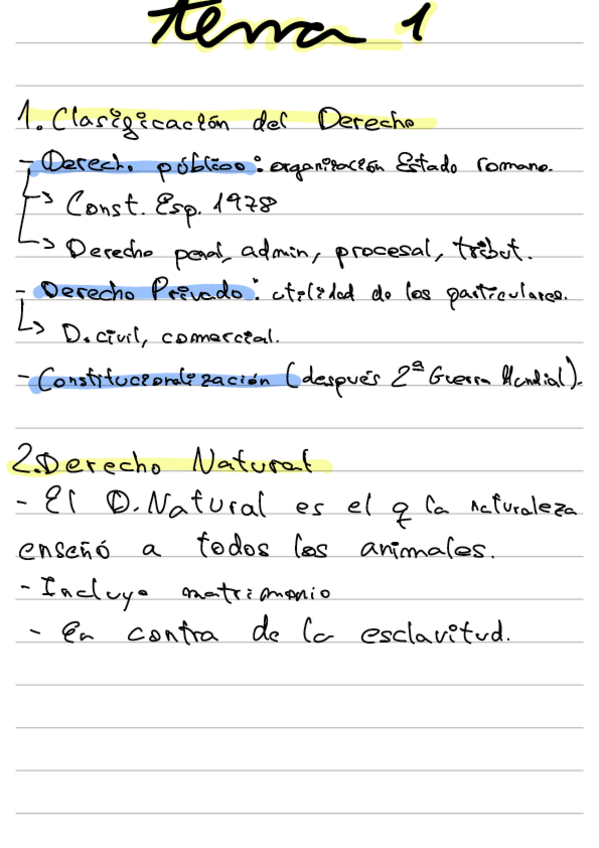 tema 1
1. Clasificación del Derecho
- Derecho público: organización Estado romano.
-> Const. Esp. 1978
-> Derecho penal, admin, procesal, tribut.
- Derecho Privado: utilidad de los particulares.
-> D. civil, comercial.
- Constitucionalización (después 2ª Guerra Mundial).
2. Derecho Natural
- El D. Natural es el q la naturaleza
enseñó a todos los animales.
- Incluye matrimonio
- En contra de la esclavitud.